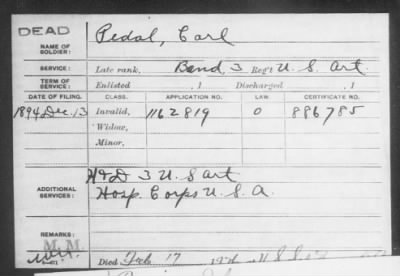 DEAD
NAME OF SOLDIER: Pedal, Carl
SERVICE: Late rank, Band, 3 Reg't U. S. Art.
TERM OF SERVICE: Enlisted , 1 Discharged , 1
DATE OF FILING. CLASS. APPLICATION NO. LAW. CERTIFICATE NO.
1894 Dec. 13 Invalid, 1162819 0 886785
Widow,
Minor,
ADDITIONAL SERVICES: H & D 3 U S art
Hosp. Corps U. S. A.
REMARKS:
M. M.
Died Feb 17